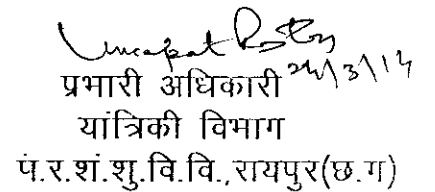 प्रभारी अधिकारी
यांत्रिकी विभाग
पं.र.शं.शु.वि.वि.,रायपुर(छ.ग)